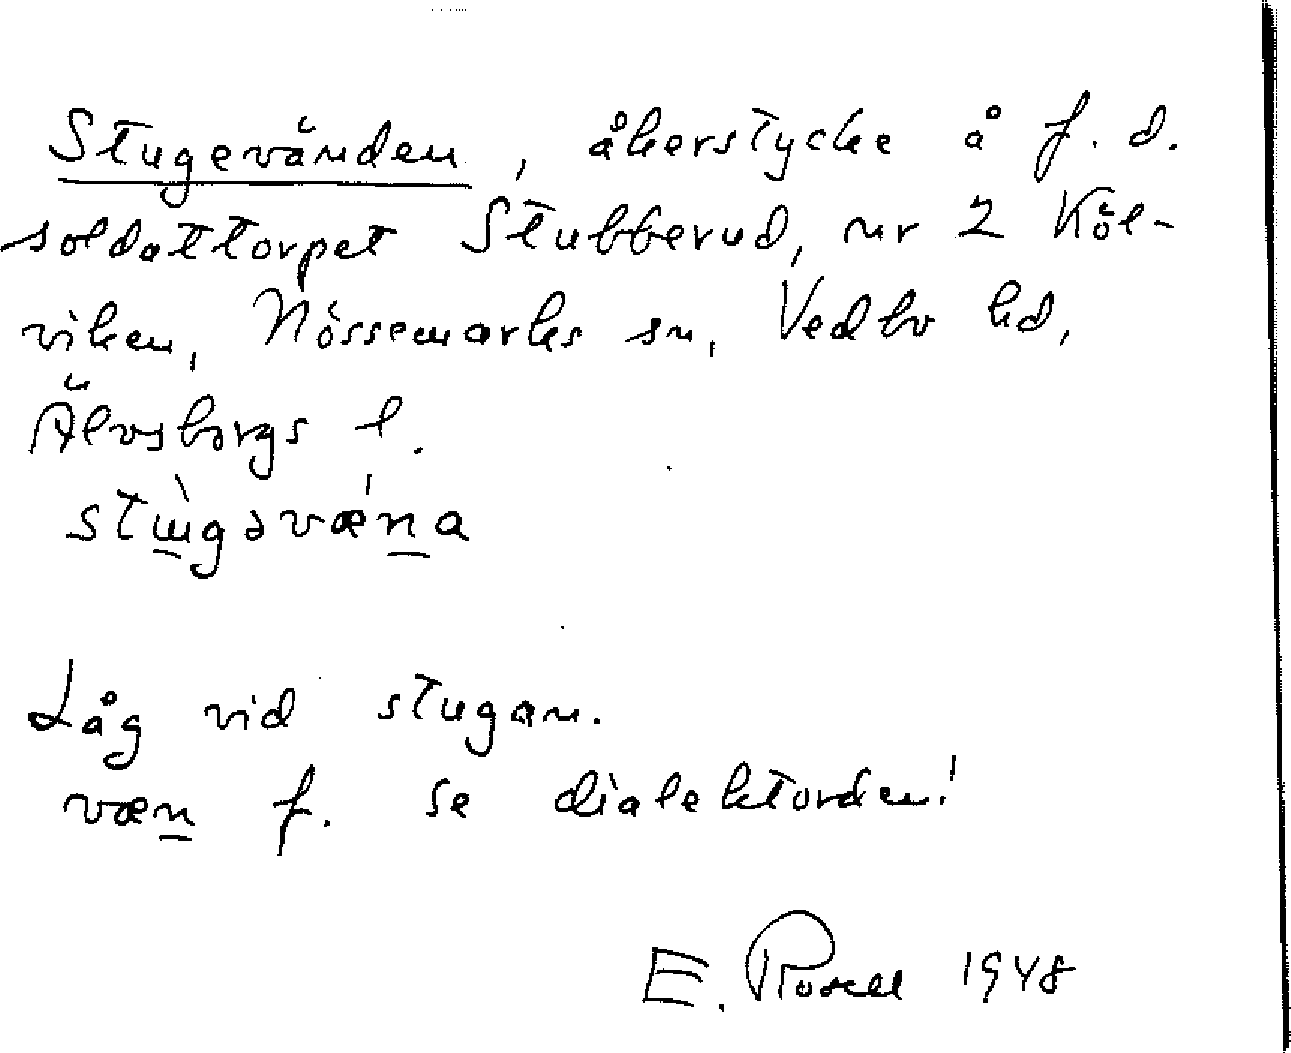 Stugevänden, åkerstycke å f.d.
soldattorpet Stubberud, nr 2 Köl-
viken, Nössemarks sn, Vedbo hd,
Älvsborgs l.
stɯ̀gəvǽna
Låg vid stugan.
væn f. se dialektorden!
E. Rosell 1948